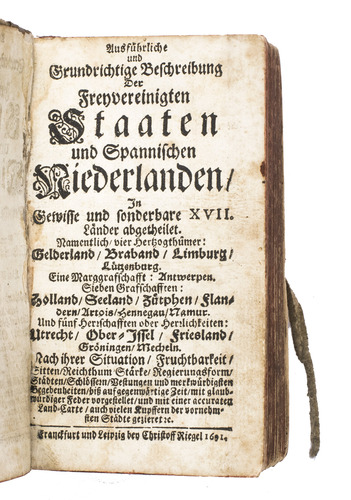 Ausführliche
und
Grundrichtige Beschreibung
Der
Freyvereinigten
Staaten
und Spannischen
Niederlanden/
In
Gewisse und sonderbare XVII.
Länder abgetheilet.
Namentlich/ vier Hertzogthümer:
Gelderland/ Braband/ Limburg/
Lützenburg.
Eine Marggrafschafft: Antwerpen.
Sieben Grafschafften:
Holland/ Seeland/ Zütphen/ Flan-
dern/ Artois/ Hennegau/ Namur.
Und fünf Herrschafften oder Herzlichkeiten:
Utrecht/ Ober-Issel/ Friesland/
Gröningen/ Mecheln.
Nach ihrer Situation/ Fruchtbarkeit/
Sitten/ Reichthum Stärke/ Regierungsform/
Städten/ Schlössern/ Vestungen und merkwürdigsten
Begebenheiten/ biß auf gegenwärtige Zeit/ mit glaub-
würdiger Feder vorgestellet/ und mit einer accuraten
Land-Carte/ auch vielen Kupffern der vornehm-
sten Städte gezieret ꝛc.
Franckfurt und Leipzig bey Christoff Riegel 1691.